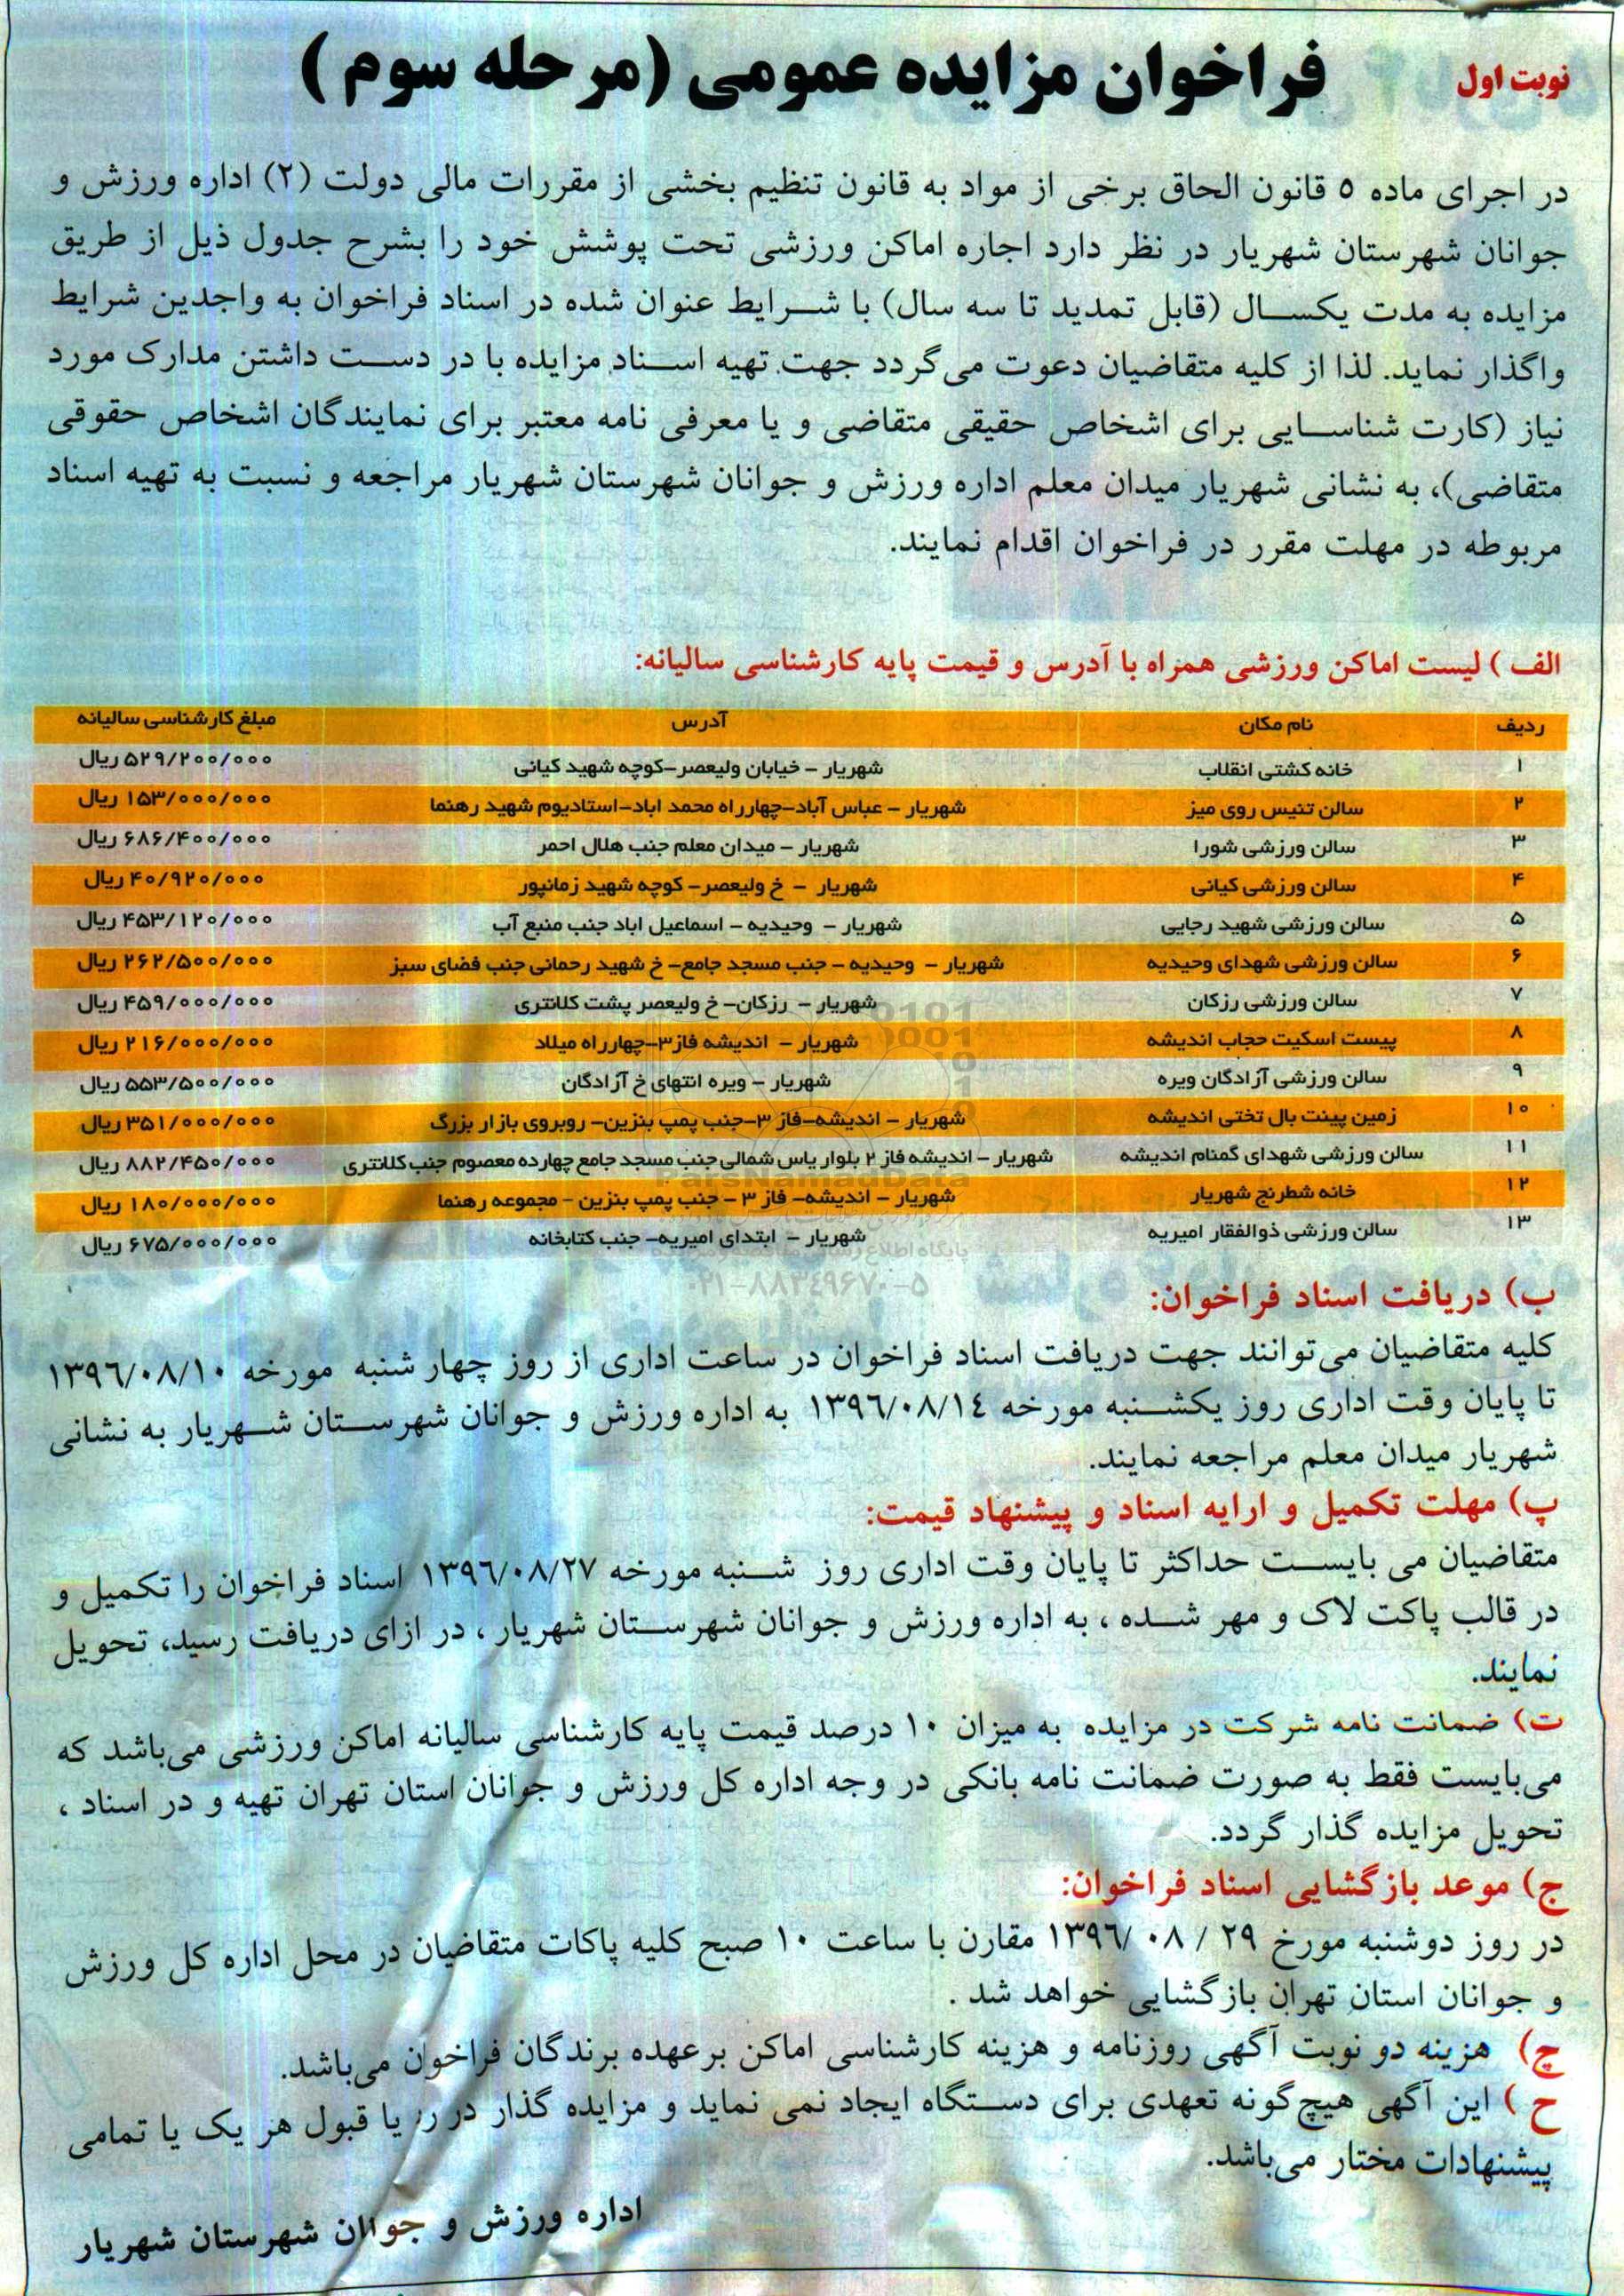 نوبت اول
فراخوان مزایده عمومی (مرحله سوم )
در اجرای ماده ٥ قانون الحاق برخی از مواد به قانون تنظیم بخشی از مقررات مالی دولت (۲) اداره ورزش و
جوانان شهرستان شهریار در نظر دارد اجاره اماکن ورزشی تحت پوشش خود را بشرح جدول ذیل از طریق
مزایده به مدت یکسال (قابل تمدید تا سه سال) با شرایط عنوان شده در اسناد فراخوان به واجدین شرایط
واگذار نماید. لذا از کلیه متقاضیان دعوت می‌گردد جهت تهیه اسناد مزایده با در دست داشتن مدارک مورد
نیاز (کارت شناسایی برای اشخاص حقیقی متقاضی و یا معرفی نامه معتبر برای نمایندگان اشخاص حقوقی
متقاضی)، به نشانی شهریار میدان معلم اداره ورزش و جوانان شهرستان شهریار مراجعه و نسبت به تهیه اسناد
مربوطه در مهلت مقرر در فراخوان اقدام نمایند.
الف ) لیست اماکن ورزشی همراه با آدرس و قیمت پایه کارشناسی سالیانه:
ردیف نام مکان آدرس مبلغ کارشناسی سالیانه
۱ خانه کشتی انقلاب شهریار – خیابان ولیعصر–کوچه شهید کیانی ۵۲۹/۲۰۰/۰۰۰ ریال
۲ سالن تنیس روی میز شهریار – عباس آباد–چهارراه محمد اباد–استادیوم شهید رهنما ۱۵۳/۰۰۰/۰۰۰ ریال
۳ سالن ورزشی شورا شهریار – میدان معلم جنب هلال احمر ۶۸۶/۴۰۰/۰۰۰ ریال
۴ سالن ورزشی کیانی شهریار – خ ولیعصر– کوچه شهید زمانپور ۴۰/۹۲۰/۰۰۰ ریال
۵ سالن ورزشی شهید رجایی شهریار – وحیدیه – اسماعیل اباد جنب منبع آب ۴۵۳/۱۲۰/۰۰۰ ریال
۶ سالن ورزشی شهدای وحیدیه شهریار – وحیدیه – جنب مسجد جامع– خ شهید رحمانی جنب فضای سبز ۲۶۲/۵۰۰/۰۰۰ ریال
۷ سالن ورزشی رزکان شهریار – رزکان– خ ولیعصر پشت کلانتری ۴۵۹/۰۰۰/۰۰۰ ریال
۸ پیست اسکیت حجاب اندیشه شهریار – اندیشه فاز۳–چهارراه میلاد ۲۱۶/۰۰۰/۰۰۰ ریال
۹ سالن ورزشی آزادگان ویره شهریار – ویره انتهای خ آزادگان ۵۵۳/۵۰۰/۰۰۰ ریال
۱۰ زمین پینت بال تختی اندیشه شهریار – اندیشه–فاز ۳–جنب پمپ بنزین– روبروی بازار بزرگ ۳۵۱/۰۰۰/۰۰۰ ریال
۱۱ سالن ورزشی شهدای گمنام اندیشه شهریار – اندیشه فاز ۲ بلوار یاس شمالی جنب مسجد جامع چهارده معصوم جنب کلانتری ۸۸۲/۴۵۰/۰۰۰ ریال
۱۲ خانه شطرنج شهریار شهریار – اندیشه– فاز ۳ – جنب پمپ بنزین – مجموعه رهنما ۱۸۰/۰۰۰/۰۰۰ ریال
۱۳ سالن ورزشی ذوالفقار امیریه شهریار – ابتدای امیریه– جنب کتابخانه ۶۷۵/۰۰۰/۰۰۰ ریال
ParsNamadData
۰۲۱–۸۸۳۴۹۶۷۰–۵
ب) دریافت اسناد فراخوان:
کلیه متقاضیان می‌توانند جهت دریافت اسناد فراخوان در ساعت اداری از روز چهار شنبه مورخه ۱۳۹٦/۰۸/۱۰
تا پایان وقت اداری روز یکشنبه مورخه ۱۳۹٦/۰۸/۱٤ به اداره ورزش و جوانان شهرستان شهریار به نشانی
شهریار میدان معلم مراجعه نمایند.
پ) مهلت تکمیل و ارایه اسناد و پیشنهاد قیمت:
متقاضیان می بایست حداکثر تا پایان وقت اداری روز شنبه مورخه ۱۳۹٦/۰۸/۲۷ اسناد فراخوان را تکمیل و
در قالب پاکت لاک و مهر شده ، به اداره ورزش و جوانان شهرستان شهریار ، در ازای دریافت رسید، تحویل
نمایند.
ت) ضمانت نامه شرکت در مزایده به میزان ۱۰ درصد قیمت پایه کارشناسی سالیانه اماکن ورزشی می‌باشد که
می‌بایست فقط به صورت ضمانت نامه بانکی در وجه اداره کل ورزش و جوانان استان تهران تهیه و در اسناد ،
تحویل مزایده گذار گردد.
ج) موعد بازگشایی اسناد فراخوان:
در روز دوشنبه مورخ ۲۹ / ۰۸ /۱۳۹٦ مقارن با ساعت ۱۰ صبح کلیه پاکات متقاضیان در محل اداره کل ورزش
و جوانان استان تهران بازگشایی خواهد شد .
چ) هزینه دو نوبت آگهی روزنامه و هزینه کارشناسی اماکن برعهده برندگان فراخوان می‌باشد.
ح ) این آگهی هیچ‌گونه تعهدی برای دستگاه ایجاد نمی نماید و مزایده گذار در رد یا قبول هر یک یا تمامی
پیشنهادات مختار می‌باشد.
اداره ورزش و جوانان شهرستان شهریار